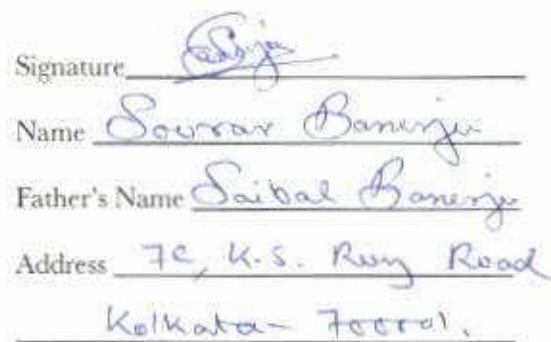 Signature
Name Sourav Banerjee
Father's Name Saibal Banerjee
Address 7C, K.S. Roy Road
Kolkata- 700001.